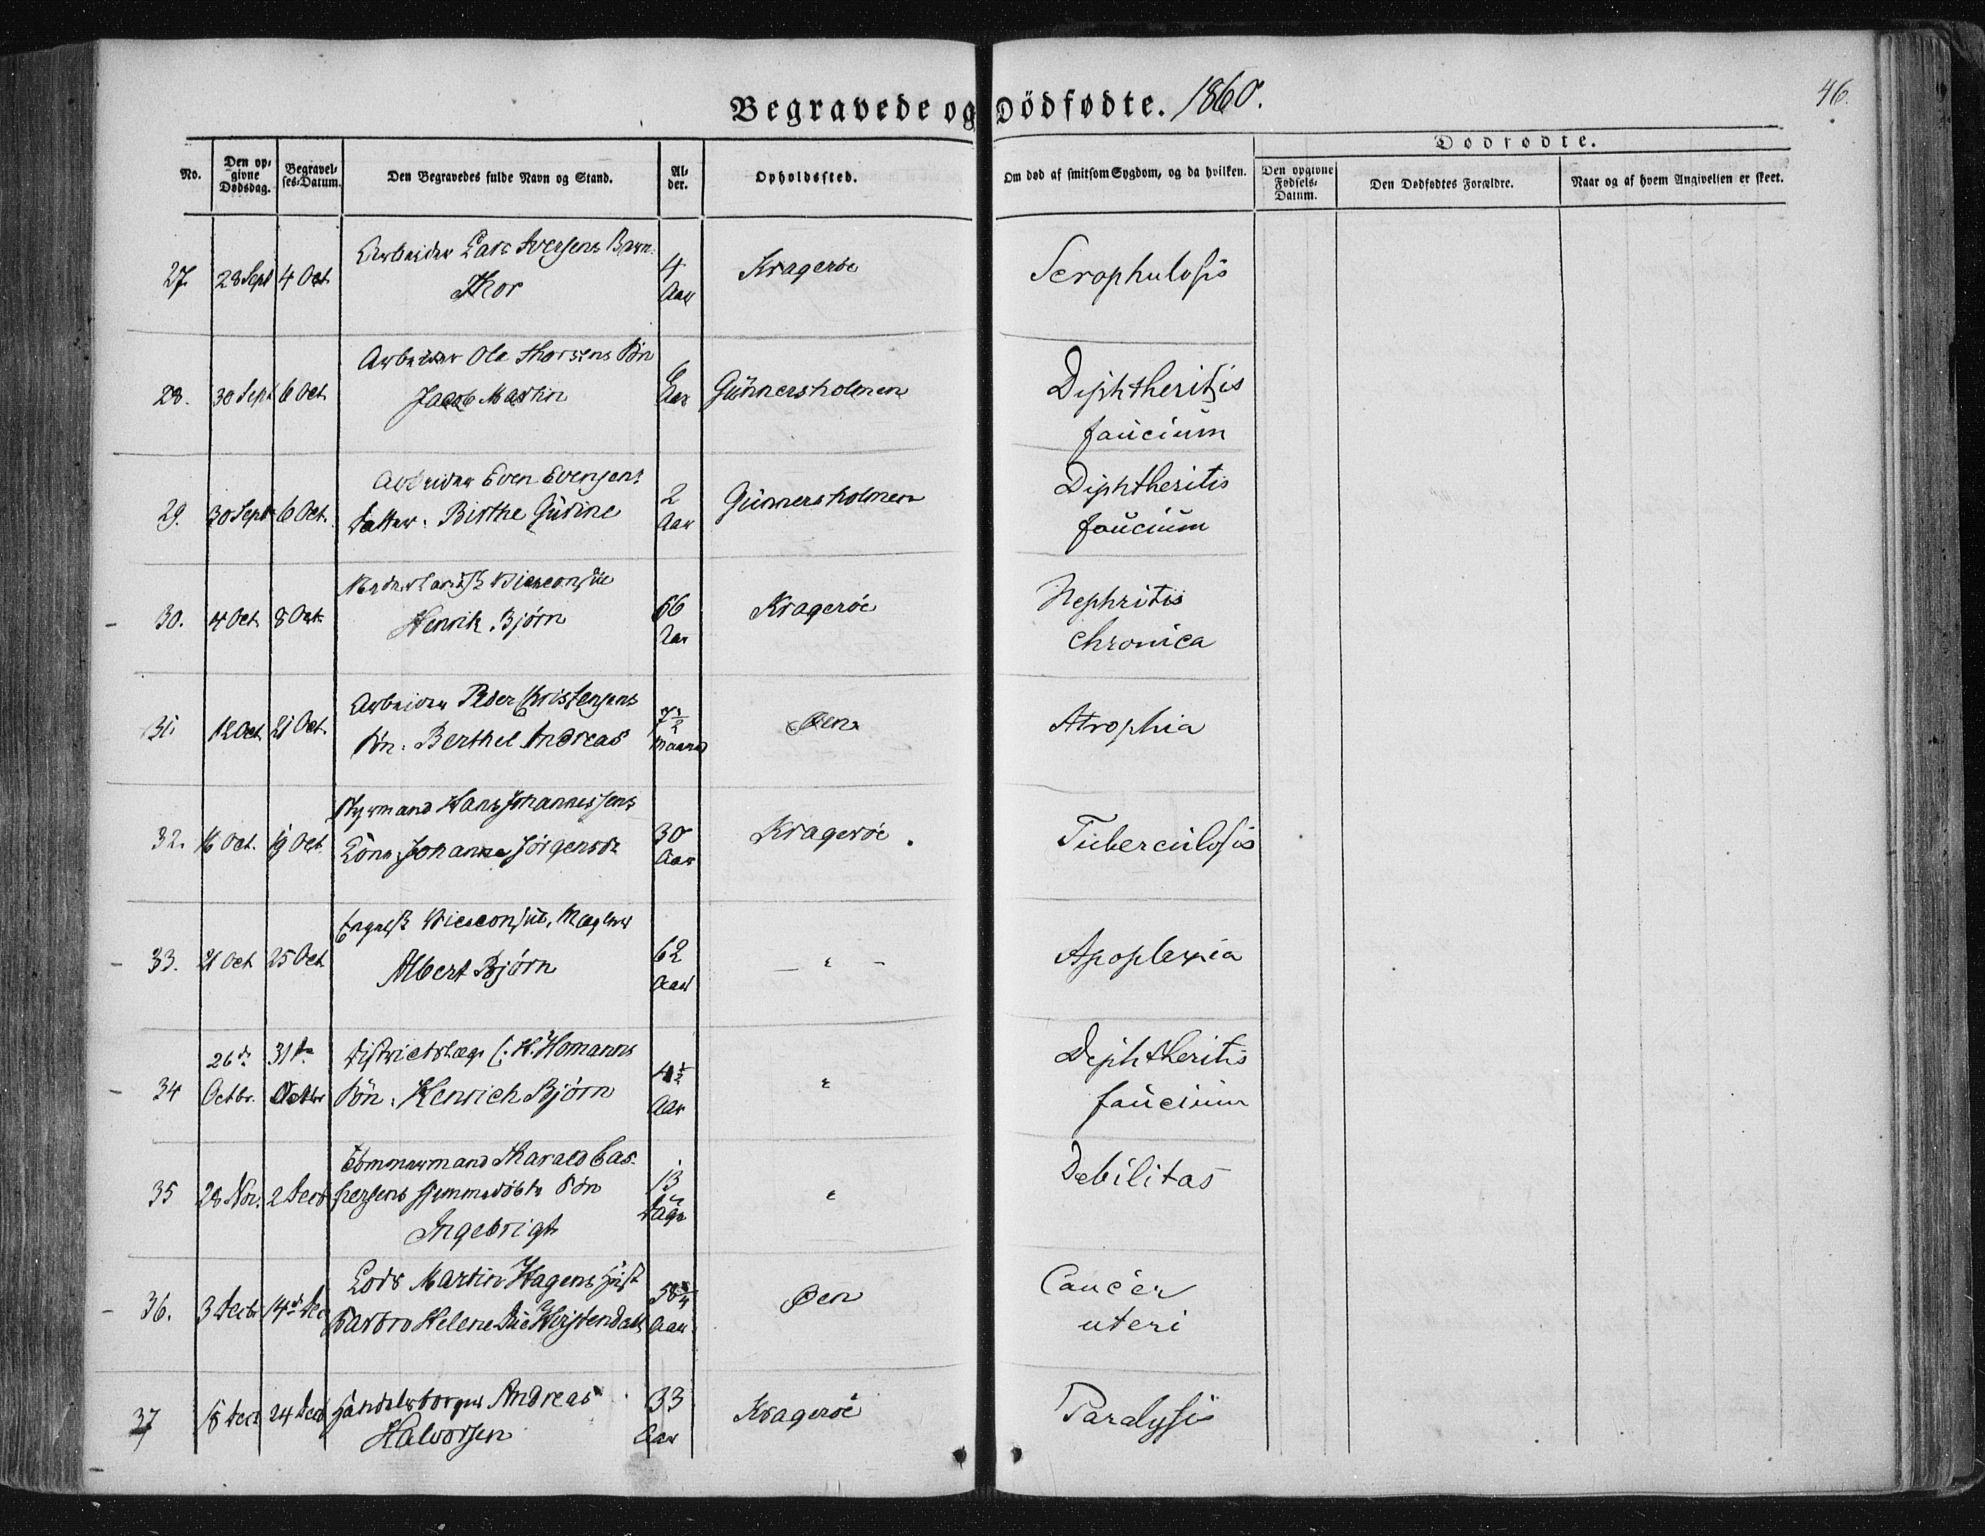 Begravede og Dödfødte. 1860.
46.
Dødfødte.
No.
Den op-
givne
Dødsdag.
Begravel-
ses-Datum.
Den Begravedes fulde Navn og Stand.
Al-
der.
Opholdssted.
Om død af smitsom Sygdom, og da hvilken.
Den opgivne
Fødsels-
Datum.
Den Dødfødtes Forældre.
Naar og af hvem Angivelsen er skeet.
Arbeider Lars Iversens Barn
27. 28 Sept 4 Oct Thor 4 Aar Kragerøe Scrophulosis
Arbeider Ole Thorsens Søn
28. 30 Sept 6 Oct Jacob Martin 6 Aar Gunnersholmen Diphtheritis
faucium
Arbeider Even Evensens
29. 30 Sept 6 Oct. Datter. Birthe Gurine 2 Aar Gunnersholmen Diphtheritis
faucium
Nederlandsk Viceconsul
30. 4 Oct 8 Oct Henrik Bjørn 66 Aar Kragerøe Nephritis
chronica
Arbeider Peder Christensens
31. 12 Oct 21 Oct Søn. Berthel Andreas 7½ Maaned Øen Atrophia
Styrmand Hans Johannessens
32. 16 Oct. 19 Oct Kone Johanne Jørgensdr 30 Aar Kragerøe. Tuberculosis
Engelsk Viceconsul, Mægler
33. 21 Oct 25 Oct Albert Bjørn 62 Aar — " — Apoplexia
26de 31te Districtslæge C. H. Homanns
34 Octbr. Octbr Søn. Henrich Bjørn 4½ Aar " Diphtheritis
faucium
Tømmermand Harald Cas-
35 28 Nov. 2 Decb persens hjemmedøbte Søn 13 Dage " Debilitas
Ingebrigt
Lods Martin Hagens
36. 3 Decbr 14de Dec Barbro Helene 58¾ Aar Øen Cancer
uteri
37 18 Dect 24 Decb Handelsborger Andreas 33 Aar Kragerøe Paralysis
Halvorsen